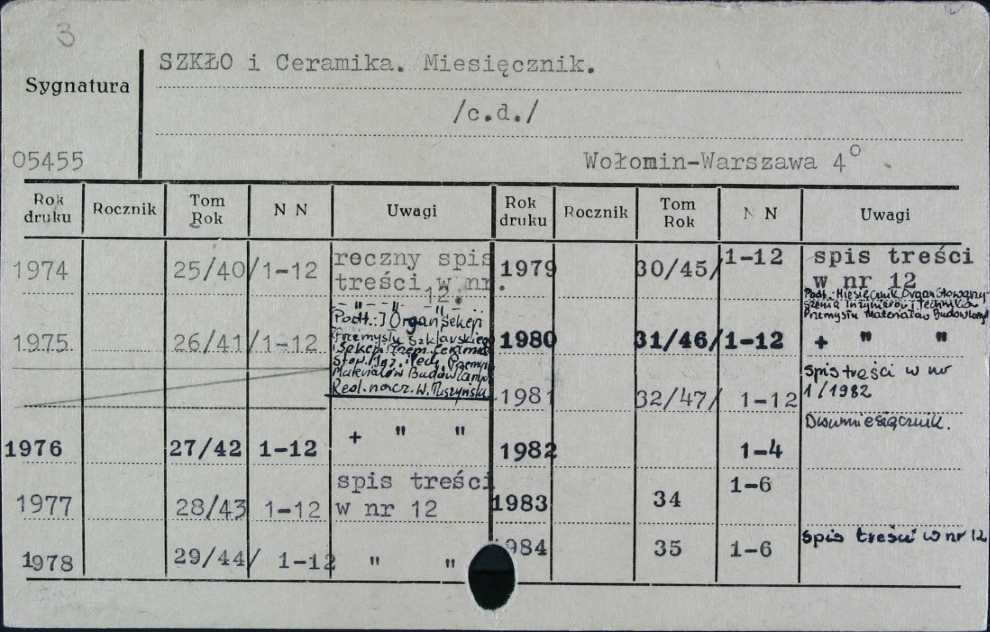 3
SZKŁO i Ceramika. Miesięcznik.
Sygnatura
/c.d./
05455
Wołomin-Warszawa 4°
Rok druku Rocznik Tom Rok N N Uwagi Rok druku Rocznik Tom Rok N N Uwagi
1974 25/40/1-12 reczny spis
treści w nr.
12.
1975 26/41/1-12 " "
Podt.: Organ Sekcji
Przemysłu Szklarskiego
i Sekcji Przem. Ceramicz.
Stow. Inż. i Tech. Przemysłu
Materiałów Budowlanych
Red. nacz. W. Tuszyński
1976 27/42 1-12 + " "
1977 28/43 1-12 spis treści
w nr 12
1978 29/44/ 1-12 " "
1979 30/45/1-12 spis treści
w nr 12
Podt.: Miesięcznik Organ Stowarzy-
szenia Inżynierów i Techników
Przemysłu Materiałów Budowlanych
1980 31/46/1-12 + " "
1981 32/47/ 1-12 Spis treści w nr
1/1982
1982 1-4 Dwumiesięcznik.
1983 34 1-6
1984 35 1-6 spis treści w nr 12